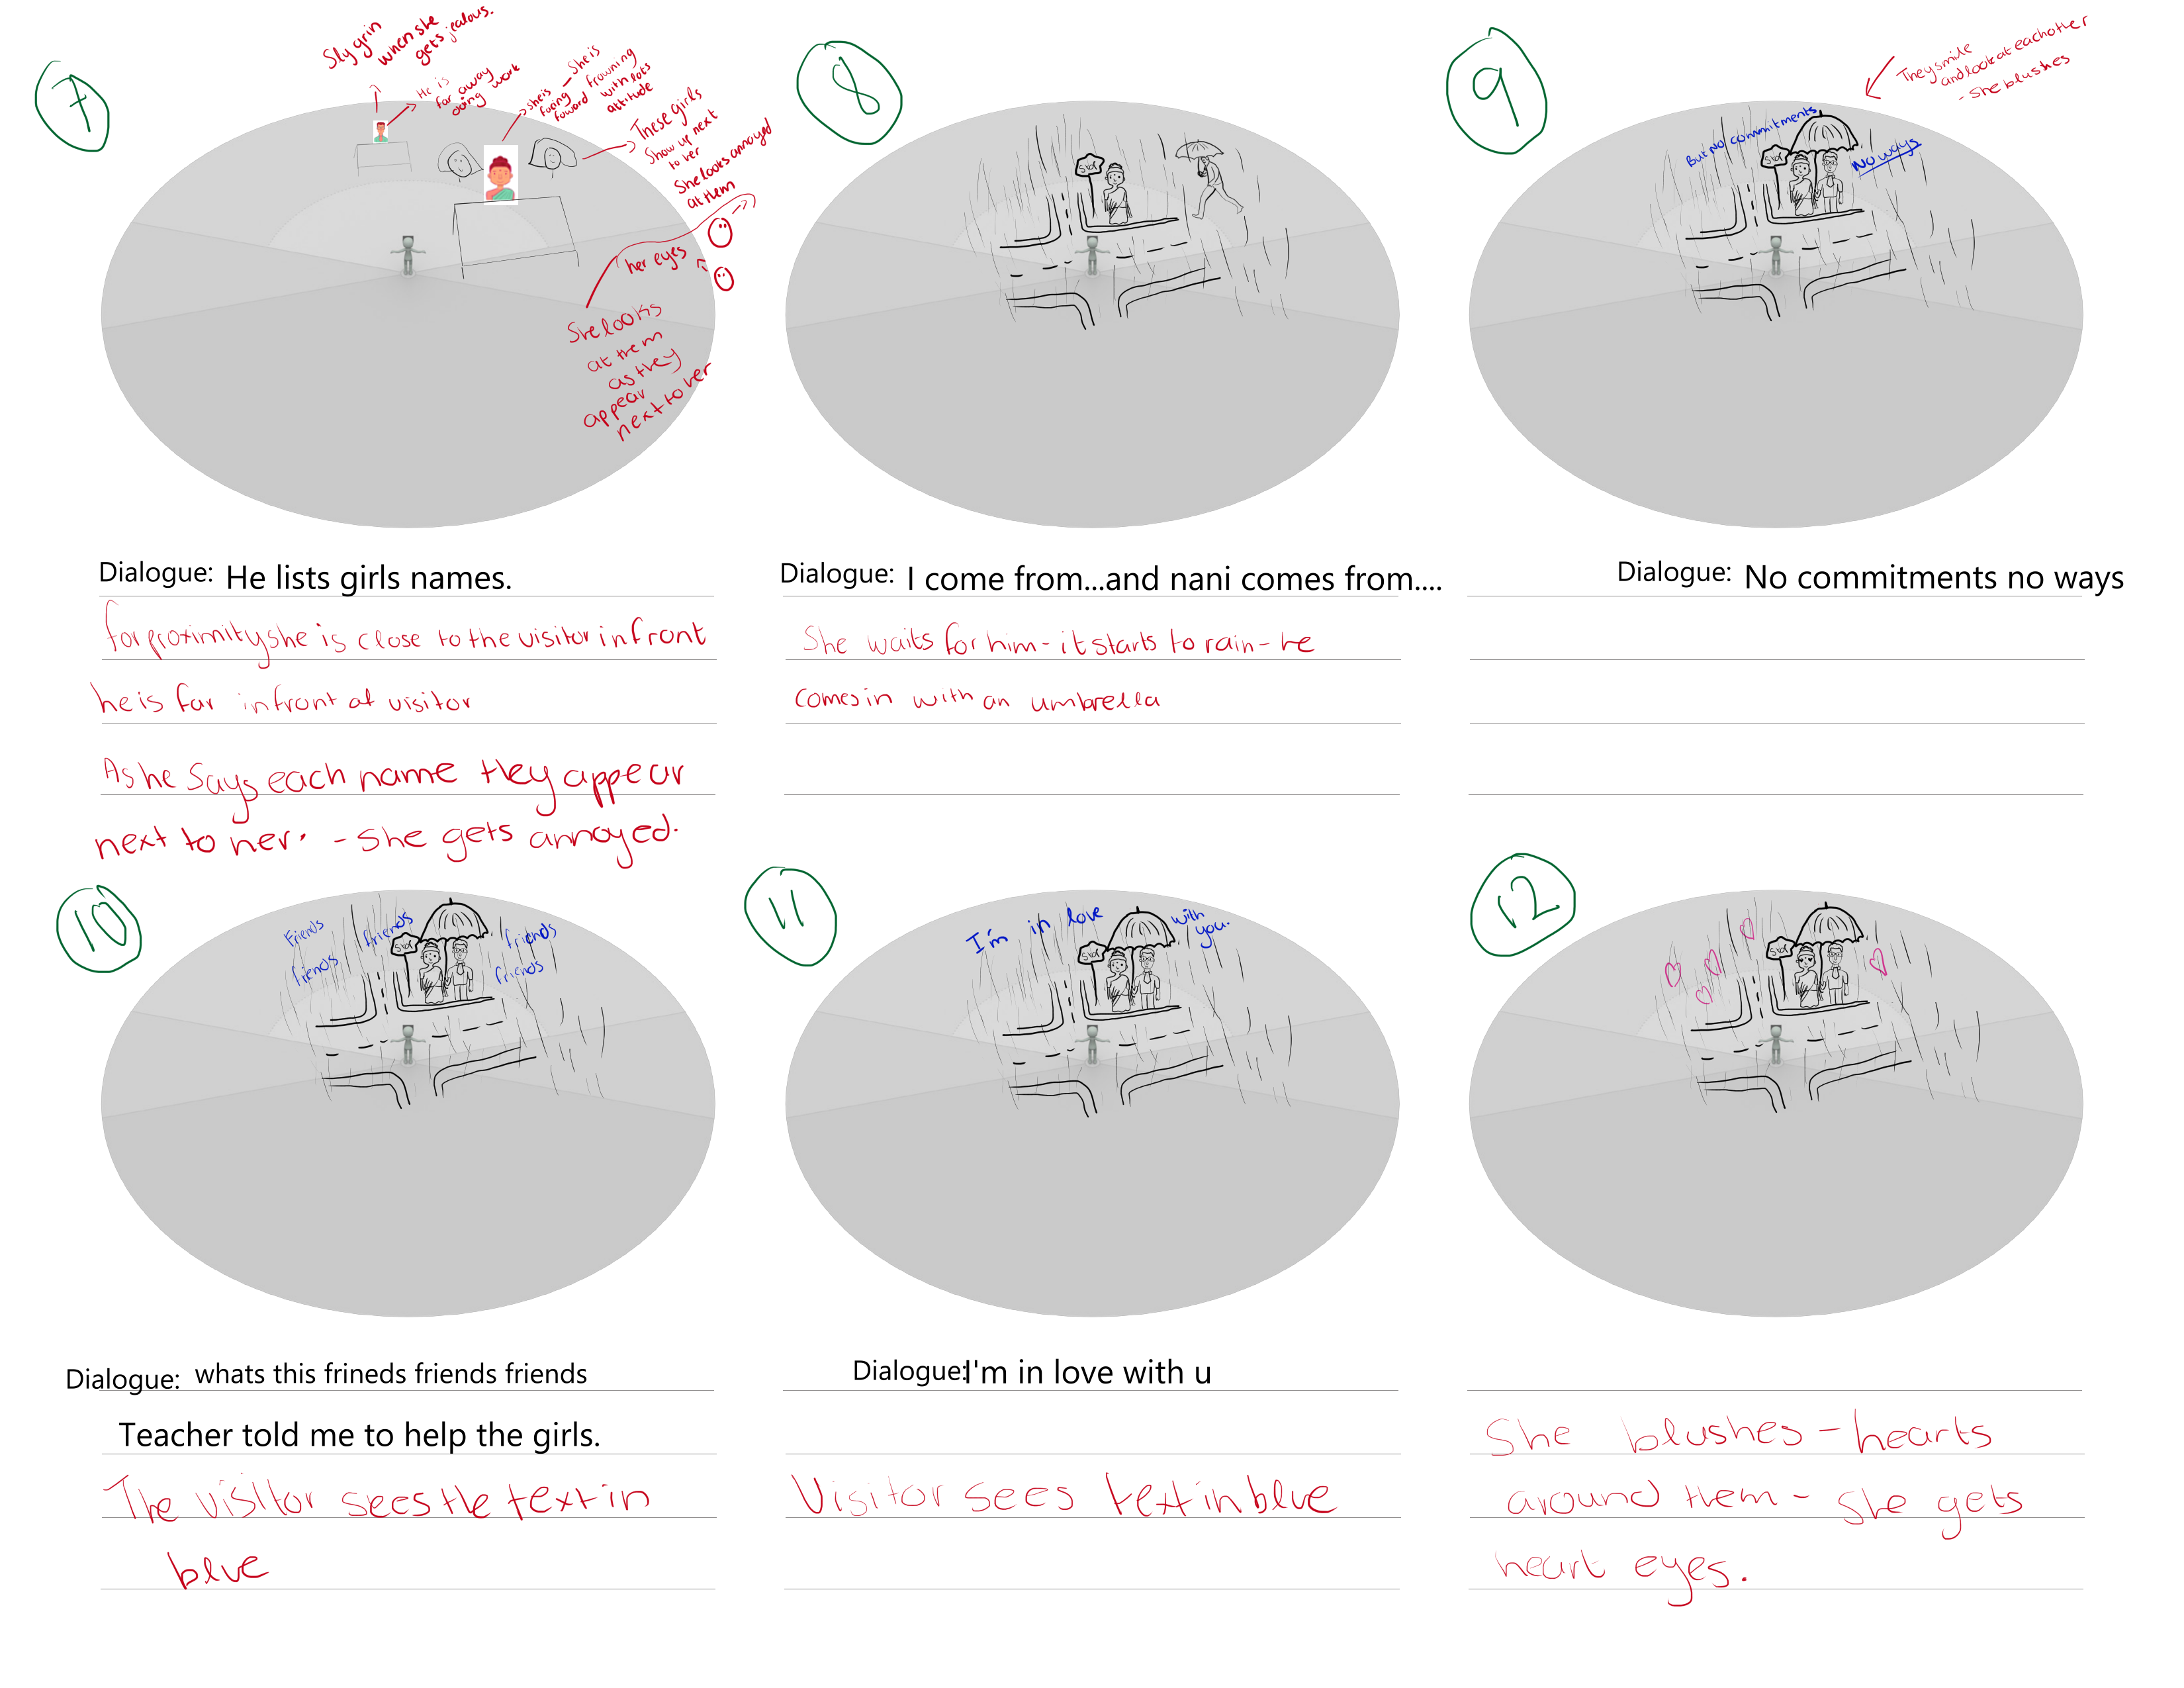 7
Sly grin
when she
gets jealous.
He is
far away
doing work
She is
facing
foward
- She is
frowning
with lots
attitude
These girls
show up next
to her
She looks annoyed
at them
her eyes
She looks
at them
as they
appear
next to her
Dialogue: He lists girls names.
for proximity she is close to the visitor in front
he is far in front of visitor
As he says each name they appear
next to her. - She gets annoyed.
8
Stop
Dialogue: I come from...and nani comes from....
She waits for him - it starts to rain - he
comes in with an umbrella
9
They smile
and look at eachother
- She blushes
But No commitments
No ways
Stop
Dialogue: No commitments no ways
10
Friends
friends
friends
friends
friends
Stop
Dialogue: whats this frineds friends friends
Teacher told me to help the girls.
The visitor sees the text in
blue
11
I'm in love with
you.
Stop
Dialogue:I'm in love with u
Visitor sees text in blue
12
Stop
She blushes - hearts
around them - she gets
heart eyes.